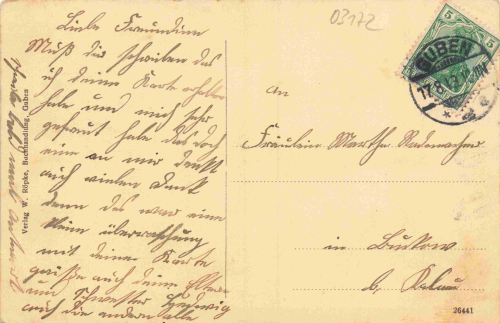 03172
Liebe Freundinn
Muß dir schreiben das
ich deine Karte erhalten
habe und mich sehr
gefreut habe das doch
eine an mir denkt
auch vielen Dank
denn das war eine
kleine überraschung
mit deine Karte
grüße auch deine Eltern
und Schwester Hedwig
auch die andern alle
Verlag W. Röpke, Buchhandlung, Guben
5
GUBEN
17.8.13
An
Fräulein Martha Rademacher
in Buckow
b. Kalau
26441